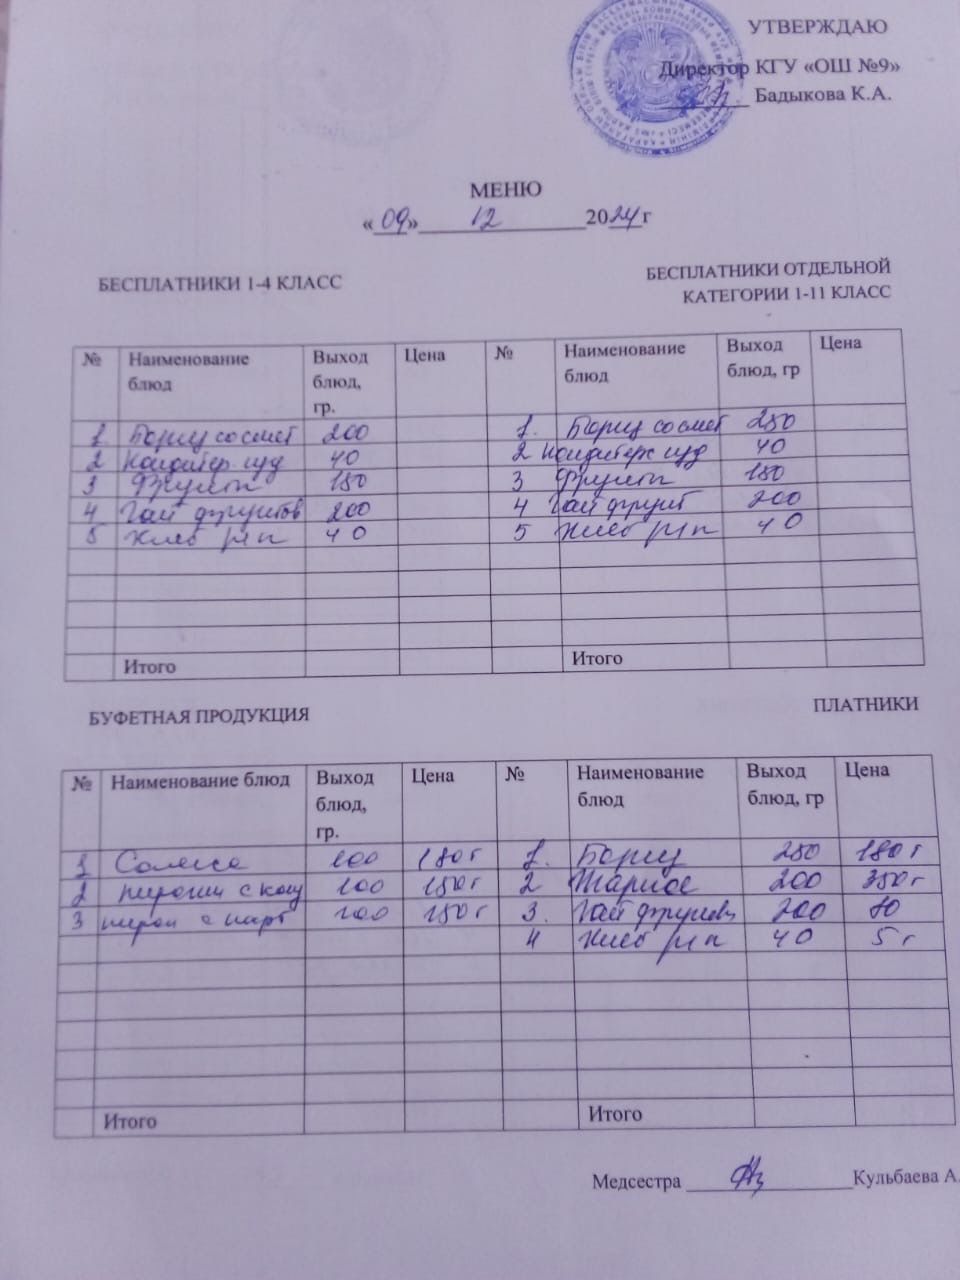 УТВЕРЖДАЮ
Директор КГУ «ОШ №9»
Бадыкова К.А.
МЕНЮ
«09» 12 2024г
БЕСПЛАТНИКИ 1-4 КЛАСС
БЕСПЛАТНИКИ ОТДЕЛЬНОЙ
КАТЕГОРИИ 1-11 КЛАСС
№ Наименование блюд Выход блюд, гр. Цена № Наименование блюд Выход блюд, гр Цена
1 Борщ со смет 200 1. Борщ со смет 250
2 Кондитер. изд 40 2 Кондитерк изд 40
3 Фрукты 150 3 Фрукты 150
4 Чай фруктов 200 4 Чай фрукт 200
5 Хлеб рж п 40 5 Хлеб рж п 40
Итого Итого
БУФЕТНАЯ ПРОДУКЦИЯ
ПЛАТНИКИ
№ Наименование блюд Выход блюд, гр. Цена № Наименование блюд Выход блюд, гр Цена
1 100 180 г 1. Борщ 250 180 г
2 пирожки с кап 100 150 г 2 Жаркое 200 350 г
3 пирож с карт 100 150 г 3. Чай фруктов 200 80
4 Хлеб рж п 40 5 г
Итого Итого
Медсестра Кульбаева А.